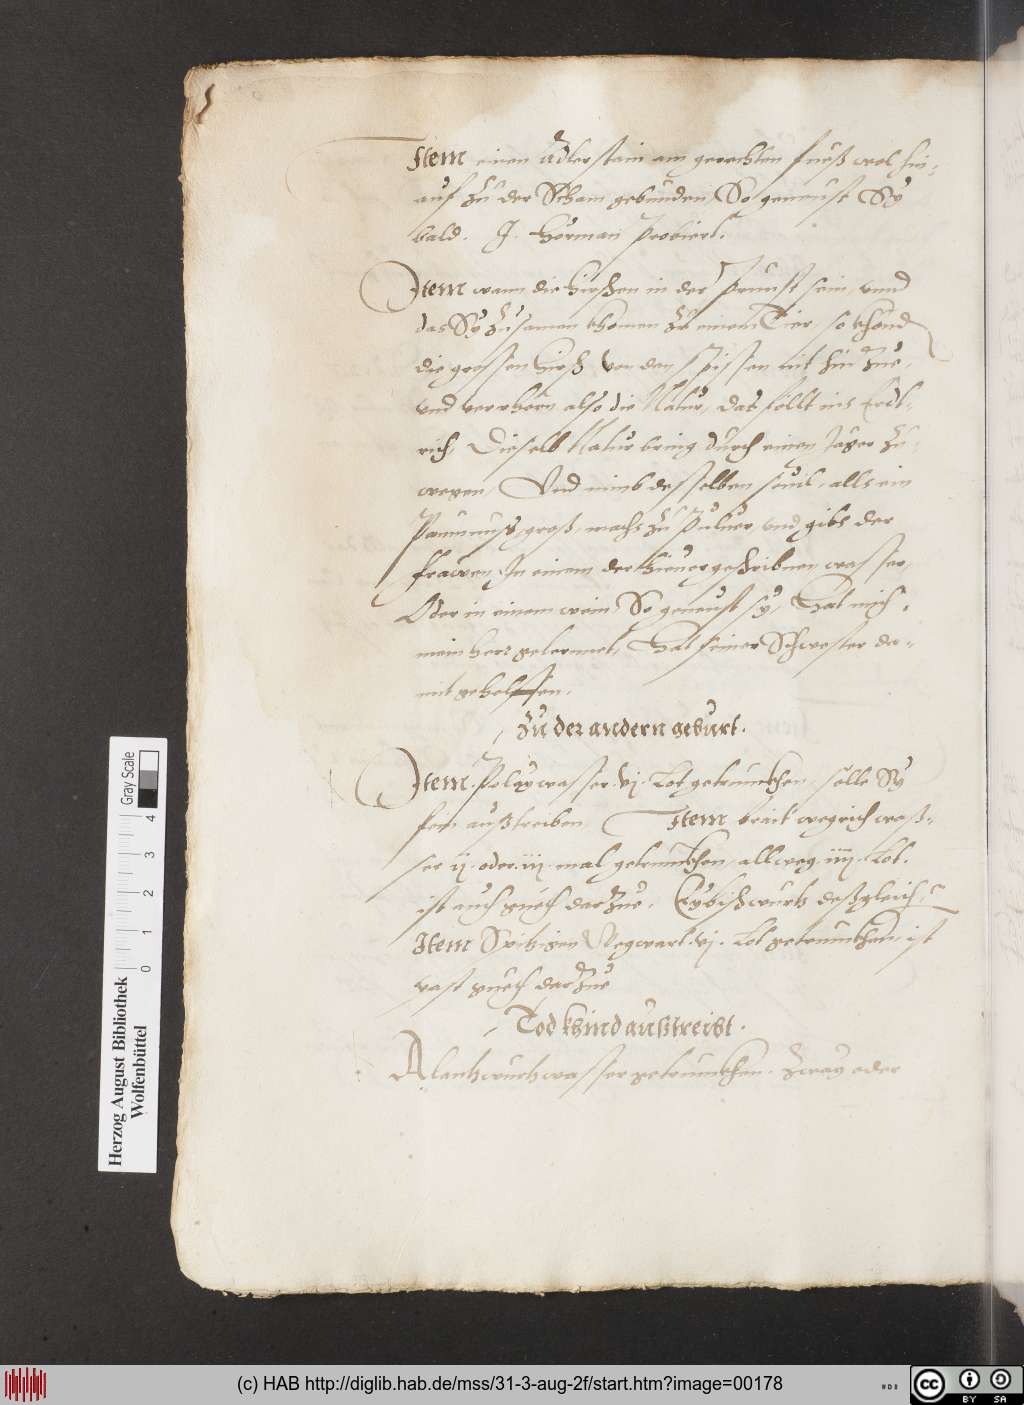 Item einen Adlerstain am gerechten fueß wol hin-
auf zu der Scham gebunden, So geneust Sy
bald. J. Herman Probiert.
Item wann die hirschen in der Prunst sein, unnd
das Sy zusamen khomen zu einem Tier, so khönd
die grossen hirsch vor den spissen nit hin zue,
und verrhern also die Natur, das fellt ins Erdt-
rich, Dieselb Natur bring durch einen Jäger zu-
wegen, Und nimb desselben souil, alls ein
Paumnuß groß, machs zu Puluer, und gibs der
frawen, In einem der hieuor geschribnen wasser,
Oder in einem wein, So geneust sy, Hat mich
mein herr gelernnet, Hat seiner Schwester da-
mit geholffen.
Zu der andern geburt.
Item Poleywasser vj Lot getrunckhen, solle Sy
fein außtreiben Item brait wegrich waß-
ser ij oder iij mal getrunckhen, allweg iiij Lot.
ist auch guett dar zue. Eybischwurtz deßgleich
Item Spitzigen Wegwart vj Lot getrunckhen, ist
vast guett darzue
Tod khind außtreibt.
Alantwurtzwasser getrunckhen. zway oder
Herzog August Bibliothek
Wolfenbüttel
Gray Scale
0 1 2 3 4
(c) HAB http://diglib.hab.de/mss/31-3-aug-2f/start.htm?image=00178
cc BY SA